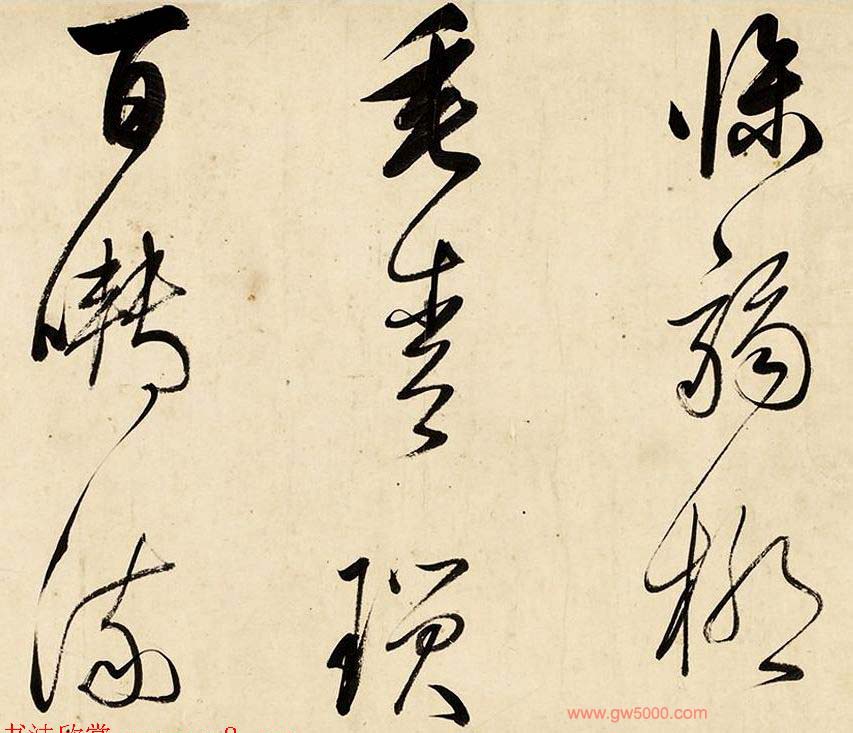 條弱柳
垂青瑣
百囀流
www.gw5000.com
书法欣赏